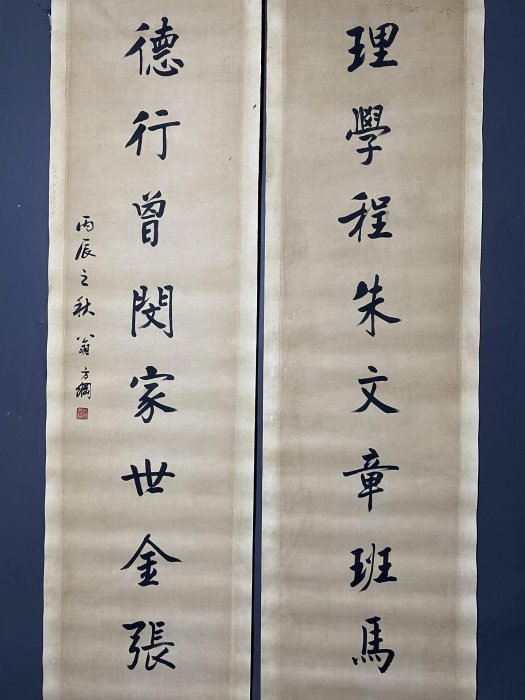 理學程朱文章班馬
德行曾閔家世金張
丙辰之秋 翁方綱